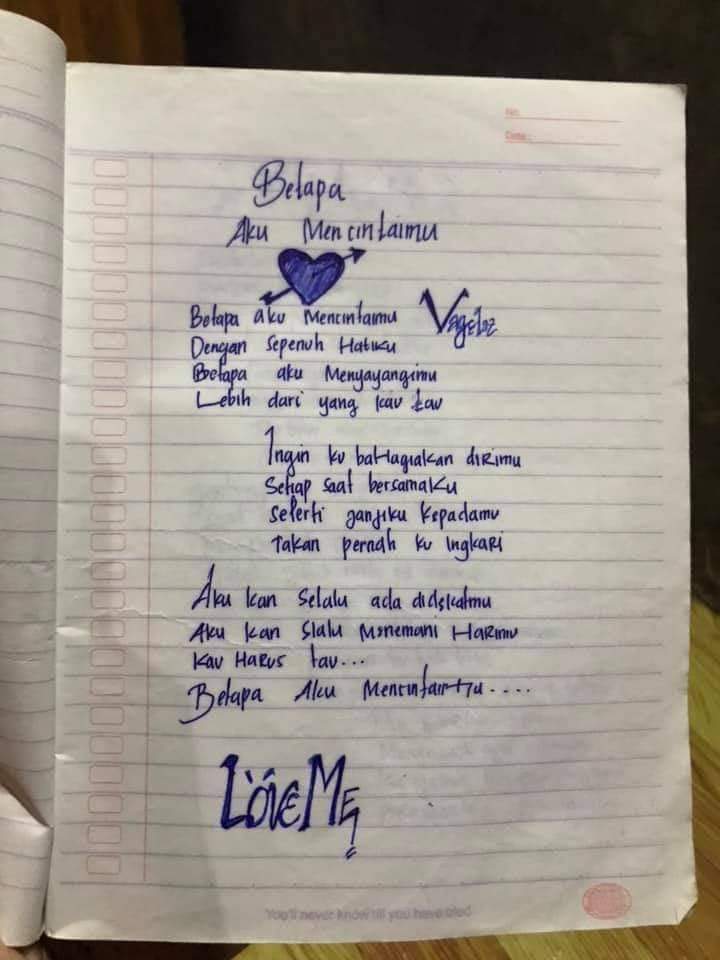 No:
Date:
Betapa
Aku Mencintaimu
Betapa aku Mencintaimu
Vagetoz
Dengan Sepenuh Hatiku
Betapa aku Menyayangimu
Lebih dari yang kau tau
Ingin ku baHagiakan diRimu
Setiap saat bersamaKu
Seperti janjiku kepadamu
Takan pernah ku IngkaRi
Aku kan Selalu ada didekatmu
Aku kan Slalu Menemani HaRimu
Kau HaRus tau...
Betapa Aku Mencintaimu....
Love Me
You'll never know till you have tried